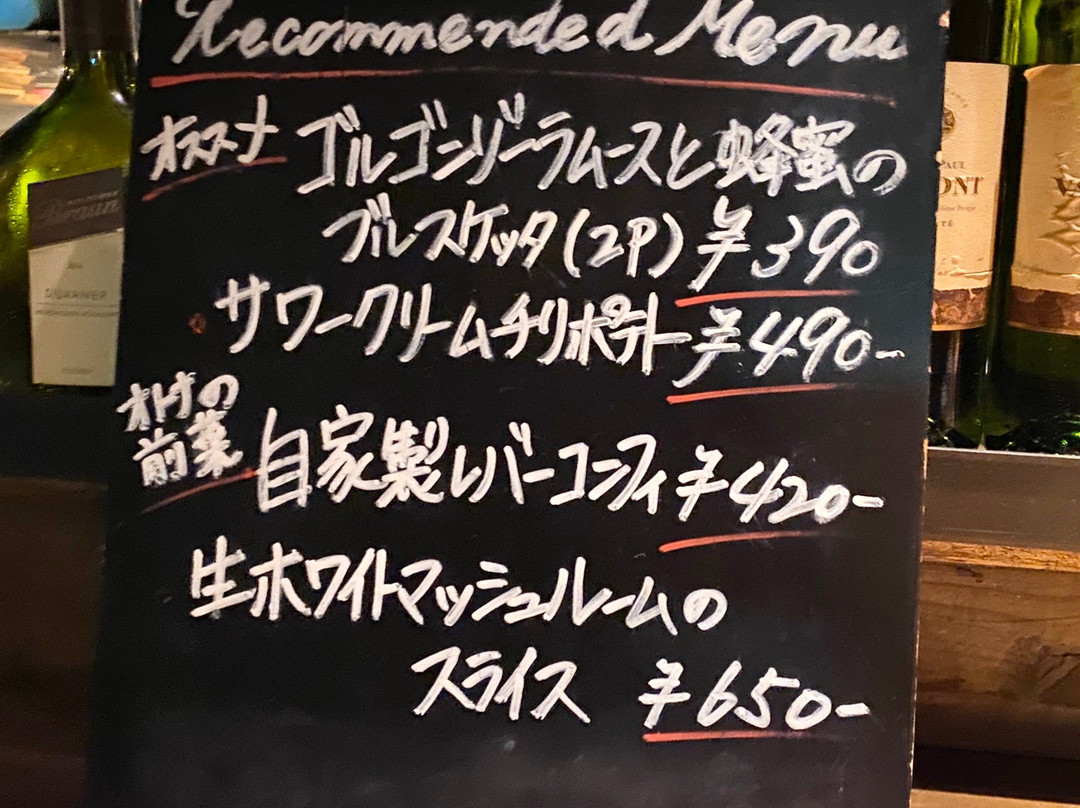 Recommended Menu
オススメ ゴルゴンゾーラムースと蜂蜜の
ブルスケッタ(2P) ¥390
サワークリームチリポテト ¥490-
オトナの
前菜
自家製レバーコンフィ ¥420-
生ホワイトマッシュルームの
スライス ¥650-
PAUL